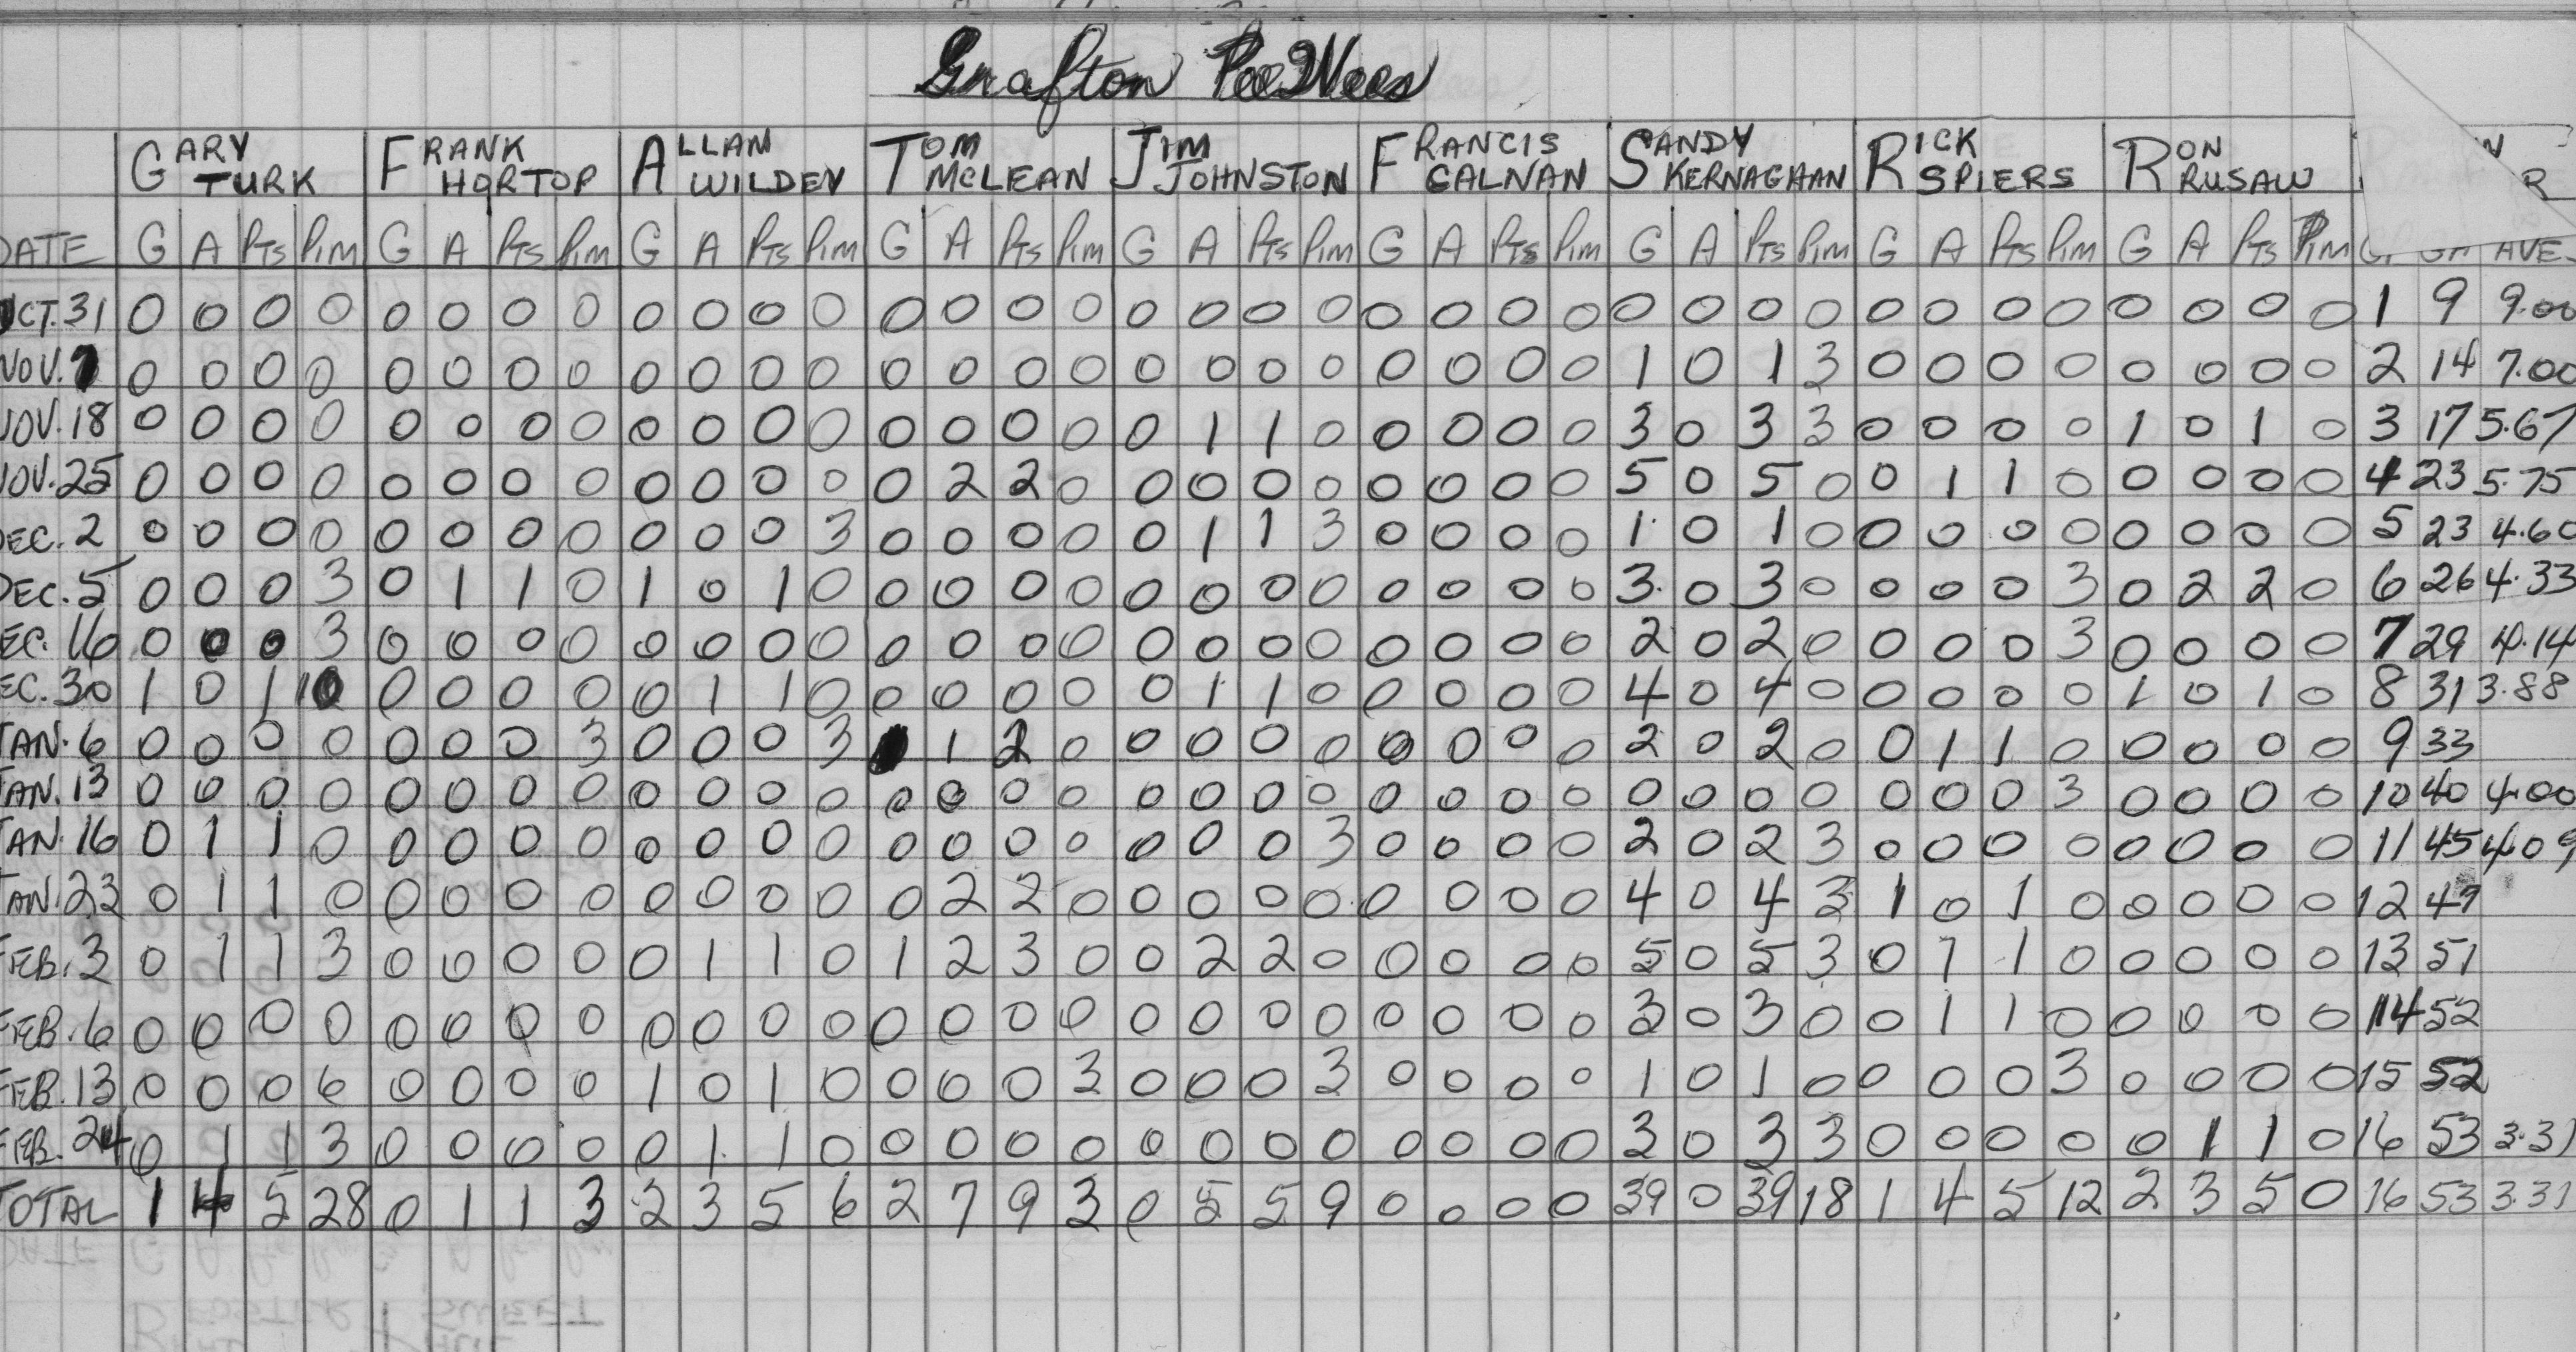 Grafton PeeWees
GARY TURK FRANK HORTOP ALLAN WILDEY TOM McLEAN JIM JOHNSTON FRANCIS CALNAN SANDY KERNAGHAN RICK SPIERS RON RUSAW N R
DATE G A Pts Pim G A Pts Pim G A Pts Pim G A Pts Pim G A Pts Pim G A Pts Pim G A Pts Pim G A Pts Pim G A Pts Pim AVE.
OCT. 31 0 0 0 0 0 0 0 0 0 0 0 0 0 0 0 0 0 0 0 0 0 0 0 0 0 0 0 0 0 0 0 0 0 0 0 0 1 9 9.00
NOV. 7 0 0 0 0 0 0 0 0 0 0 0 0 0 0 0 0 0 0 0 0 0 0 0 0 1 0 1 3 0 0 0 0 0 0 0 0 2 14 7.00
NOV. 18 0 0 0 0 0 0 0 0 0 0 0 0 0 0 0 0 0 1 1 0 0 0 0 0 3 0 3 3 0 0 0 0 1 0 1 0 3 17 5.67
NOV. 25 0 0 0 0 0 0 0 0 0 0 0 0 0 2 2 0 0 0 0 0 0 0 0 0 5 0 5 0 0 1 1 0 0 0 0 0 4 23 5.75
DEC. 2 0 0 0 0 0 0 0 0 0 0 0 3 0 0 0 0 0 1 1 3 0 0 0 0 1 0 1 0 0 0 0 0 0 0 0 0 5 23 4.60
DEC. 5 0 0 0 3 0 1 1 0 1 0 1 0 0 0 0 0 0 0 0 0 0 0 0 0 3 0 3 0 0 0 0 3 0 2 2 0 6 26 4.33
EC. 16 0 0 0 3 0 0 0 0 0 0 0 0 0 0 0 0 0 0 0 0 0 0 0 0 2 0 2 0 0 0 0 3 0 0 0 0 7 29 4.14
EC. 30 1 0 1 10 0 0 0 0 0 1 1 0 0 0 0 0 0 1 1 0 0 0 0 0 4 0 4 0 0 0 0 0 1 0 1 0 8 31 3.88
JAN. 6 0 0 0 0 0 0 0 3 0 0 0 3 1 2 0 0 0 0 0 0 0 0 0 2 0 2 0 0 1 1 0 0 0 0 0 9 33
JAN. 13 0 0 0 0 0 0 0 0 0 0 0 0 0 0 0 0 0 0 0 0 0 0 0 0 0 0 0 0 0 0 0 3 0 0 0 0 10 40 4.00
JAN. 16 0 1 1 0 0 0 0 0 0 0 0 0 0 0 0 0 0 0 0 3 0 0 0 0 2 0 2 3 0 0 0 0 0 0 0 0 11 45 4.09
JAN. 23 0 1 1 0 0 0 0 0 0 0 0 0 0 2 2 0 0 0 0 0 0 0 0 0 4 0 4 3 1 0 1 0 0 0 0 0 12 49
FEB. 3 0 1 1 3 0 0 0 0 0 1 1 0 1 2 3 0 0 2 2 0 0 0 0 0 5 0 5 3 0 1 1 0 0 0 0 0 13 51
FEB. 6 0 0 0 0 0 0 0 0 0 0 0 0 0 0 0 0 0 0 0 0 0 0 0 0 3 0 3 0 0 1 1 0 0 0 0 0 14 52
FEB. 13 0 0 0 6 0 0 0 0 1 0 1 0 0 0 0 3 0 0 0 3 0 0 0 0 1 0 1 0 0 0 0 3 0 0 0 0 15 52
FEB. 24 0 1 1 3 0 0 0 0 0 1 1 0 0 0 0 0 0 0 0 0 0 0 0 0 3 0 3 3 0 0 0 0 0 1 1 0 16 53 3.31
TOTAL 1 4 5 28 0 1 1 3 2 3 5 6 2 7 9 3 0 5 5 9 0 0 0 0 39 0 39 18 1 4 5 12 2 3 5 0 16 53 3.31